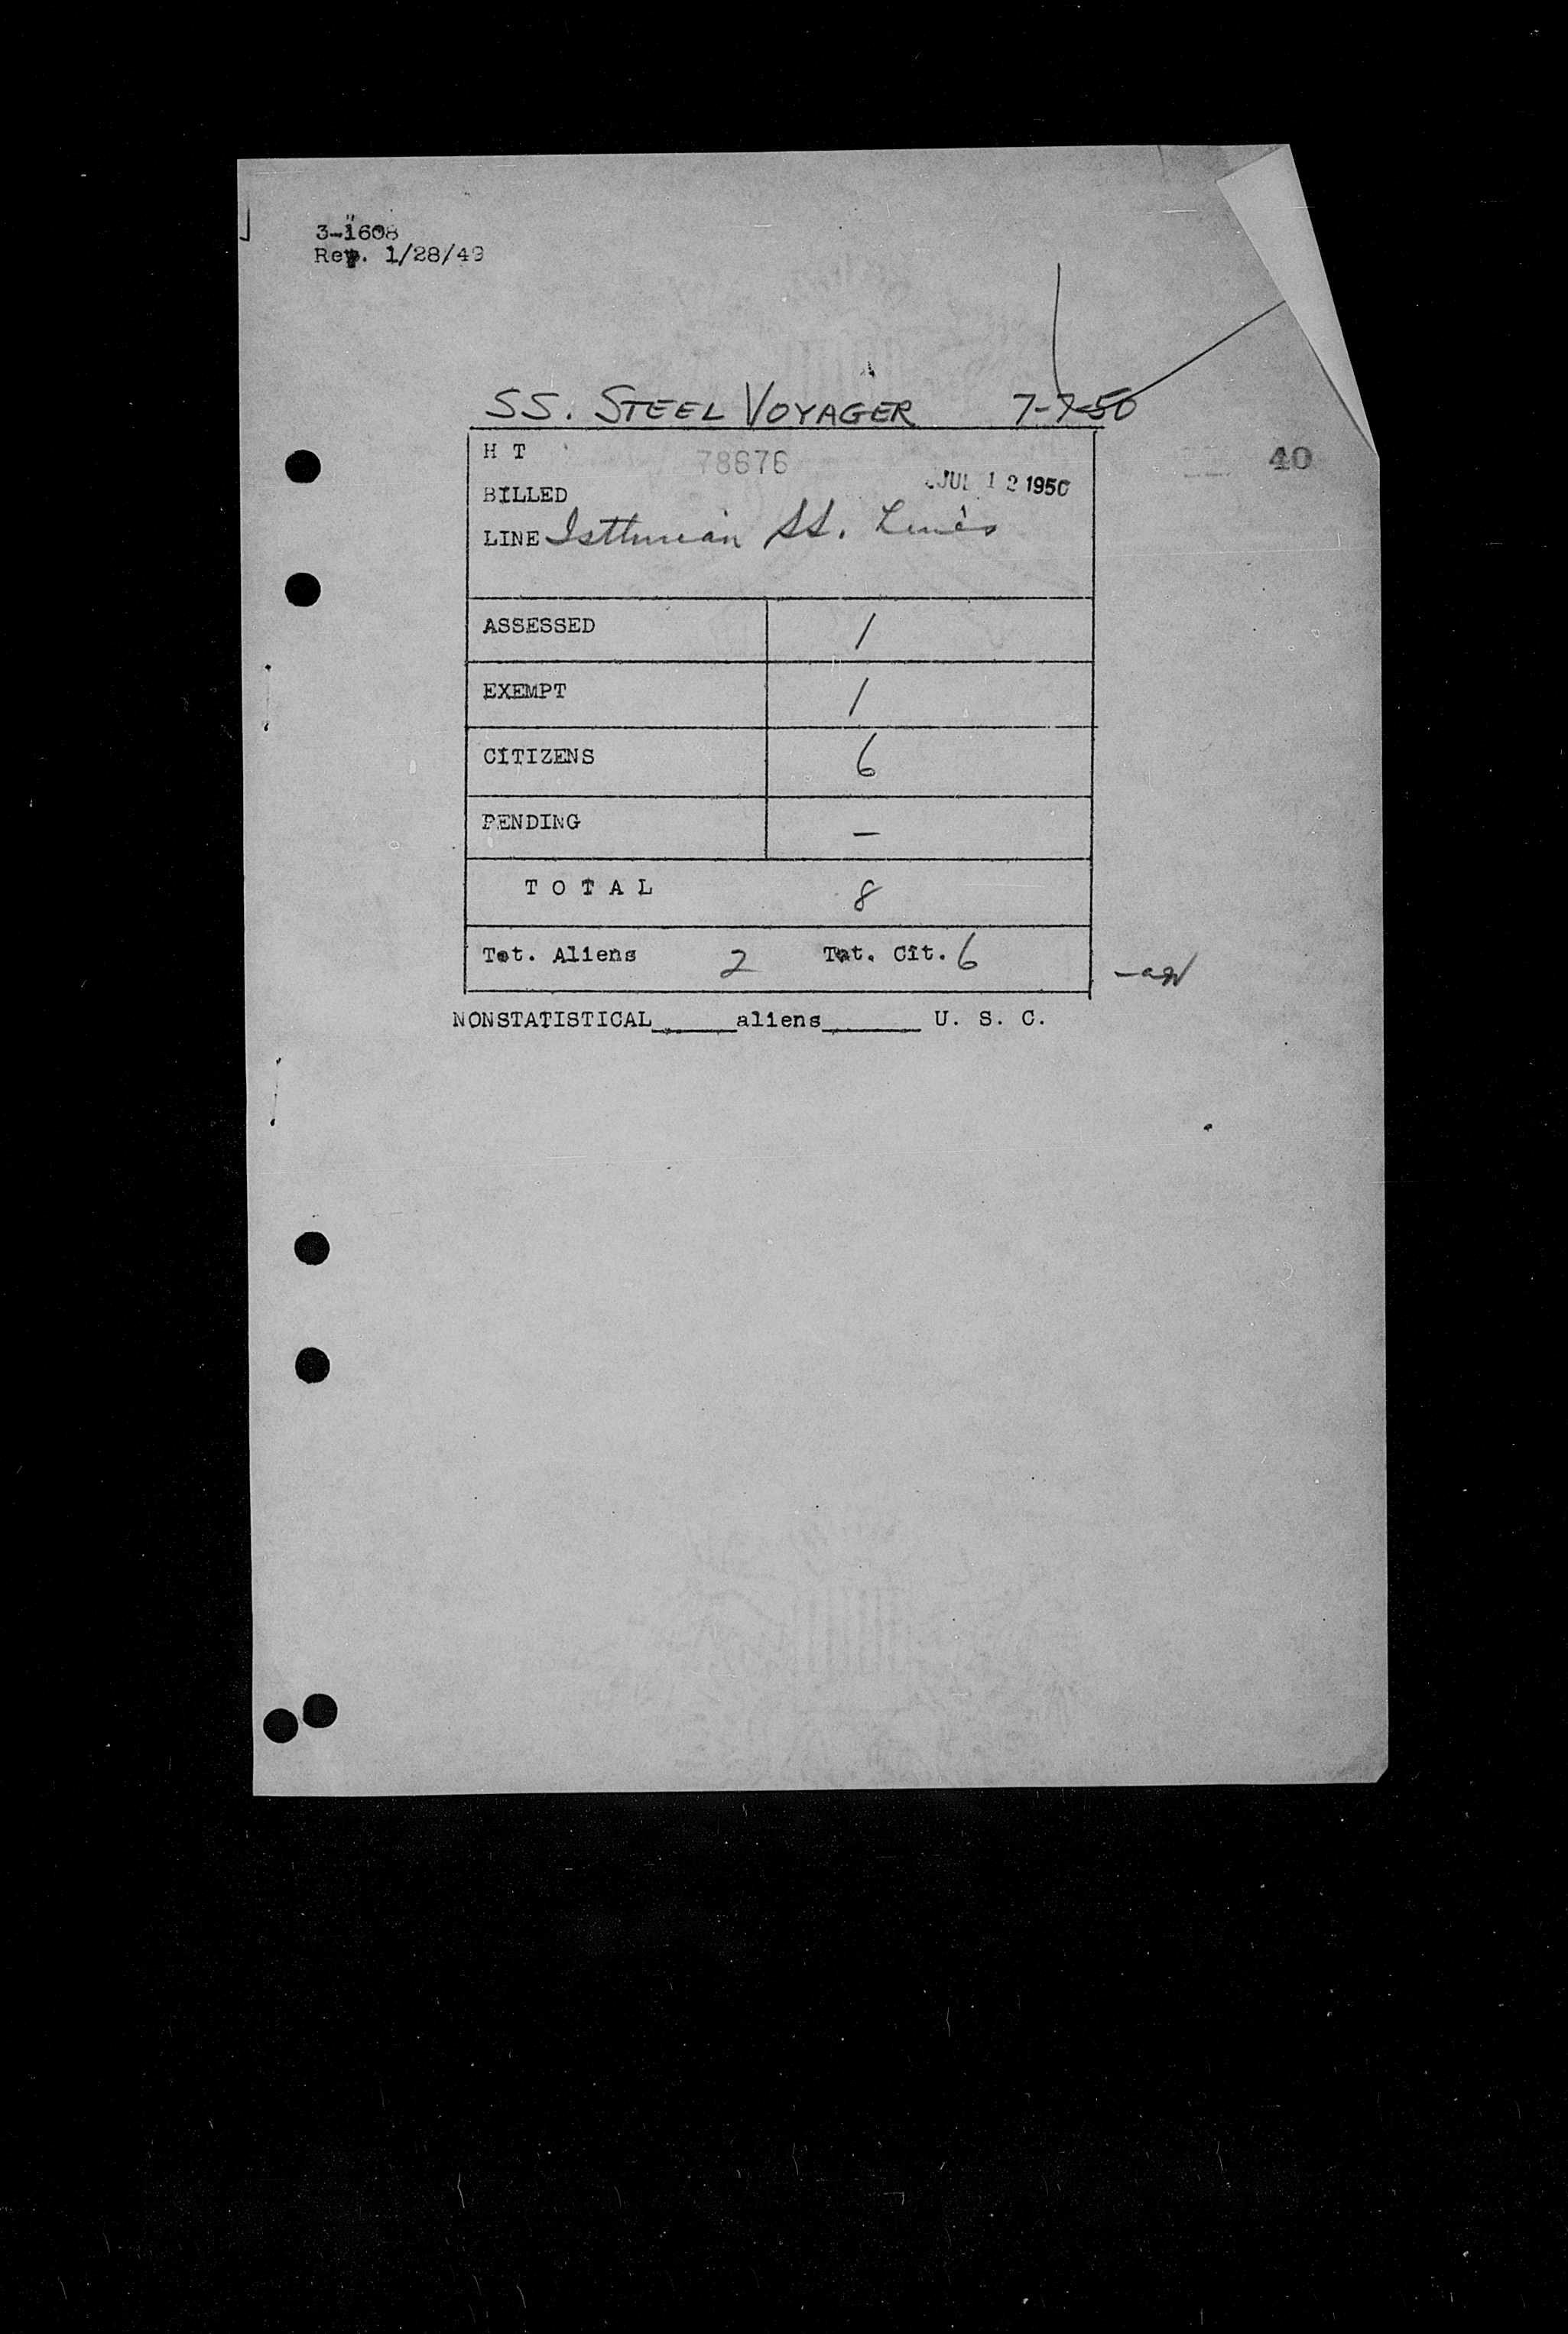 3-1608
Rev. 1/28/49
SS. STEEL VOYAGER 7-7-50
H T 78676
BILLED JUL 12 1950
40
LINE Isthmian SS. Lines
ASSESSED 1
EXEMPT 1
CITIZENS 6
PENDING —
T O T A L 8
Tot. Aliens 2 Tot. Cit. 6
NONSTATISTICAL_____aliens______ U. S. C.